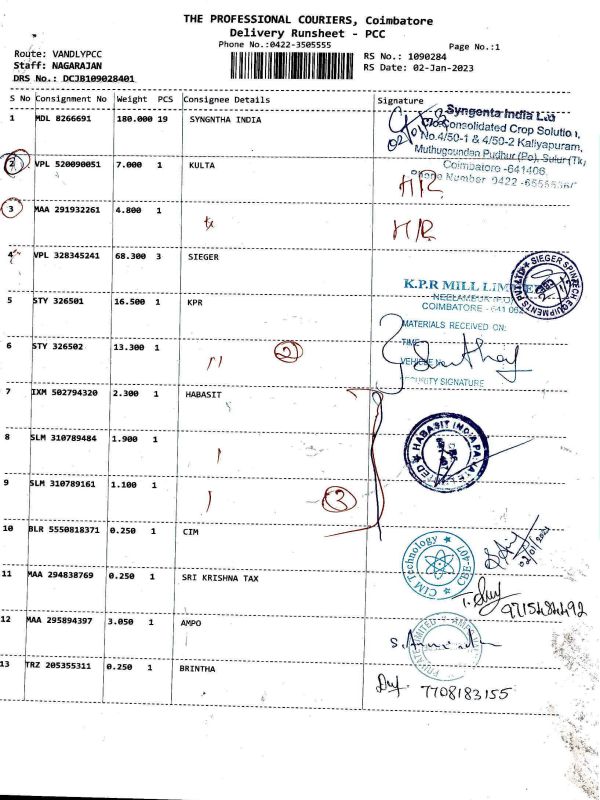 THE PROFESSIONAL COURIERS, Coimbatore
Delivery Runsheet - PCC
Phone No.:0422-3505555
Page No.:1
Route: VANDLYPCC
Staff: NAGARAJAN
DRS No.: DCJB109028401
RS No.: 1090284
RS Date: 02-Jan-2023
S No Consignment No Weight PCS Consignee Details Signature
1 MDL 8266691 180.000 19 SYNGNTHA INDIA
Syngenta India Ltd
Consolidated Crop Solution,
No.4/50-1 & 4/50-2 Kaliyapuram,
Muthugoundan Pudhur (Po), Sulur (Tk)
Coimbatore -641406.
Phone Number 0422
2 VPL 520090051 7.000 1 KULTA H/R
3 MAA 291932261 4.800 1 H/R
4 VPL 328345241 68.300 3 SIEGER
SIEGER SPINTECH EQUIPMENTS PVT LTD
5 STY 326501 16.500 1 KPR
K.P.R MILL LIMITED
COIMBATORE - 641 062
MATERIALS RECEIVED ON:
TIME
VEHICLE No
SECURITY SIGNATURE
6 STY 326502 13.300 1 11 2
7 IXM 502794320 2.300 1 HABASIT
8 SLM 310789484 1.900 1
HABASIT INDIA
9 SLM 310789161 1.100 1 3
10 BLR 5550818371 0.250 1 CIM
CIM Technology
02/01/2023
11 MAA 294838769 0.250 1 SRI KRISHNA TAX
9715484492
12 MAA 295894397 3.050 1 AMPO
13 TRZ 205355311 0.250 1 BRINTHA
7708183155